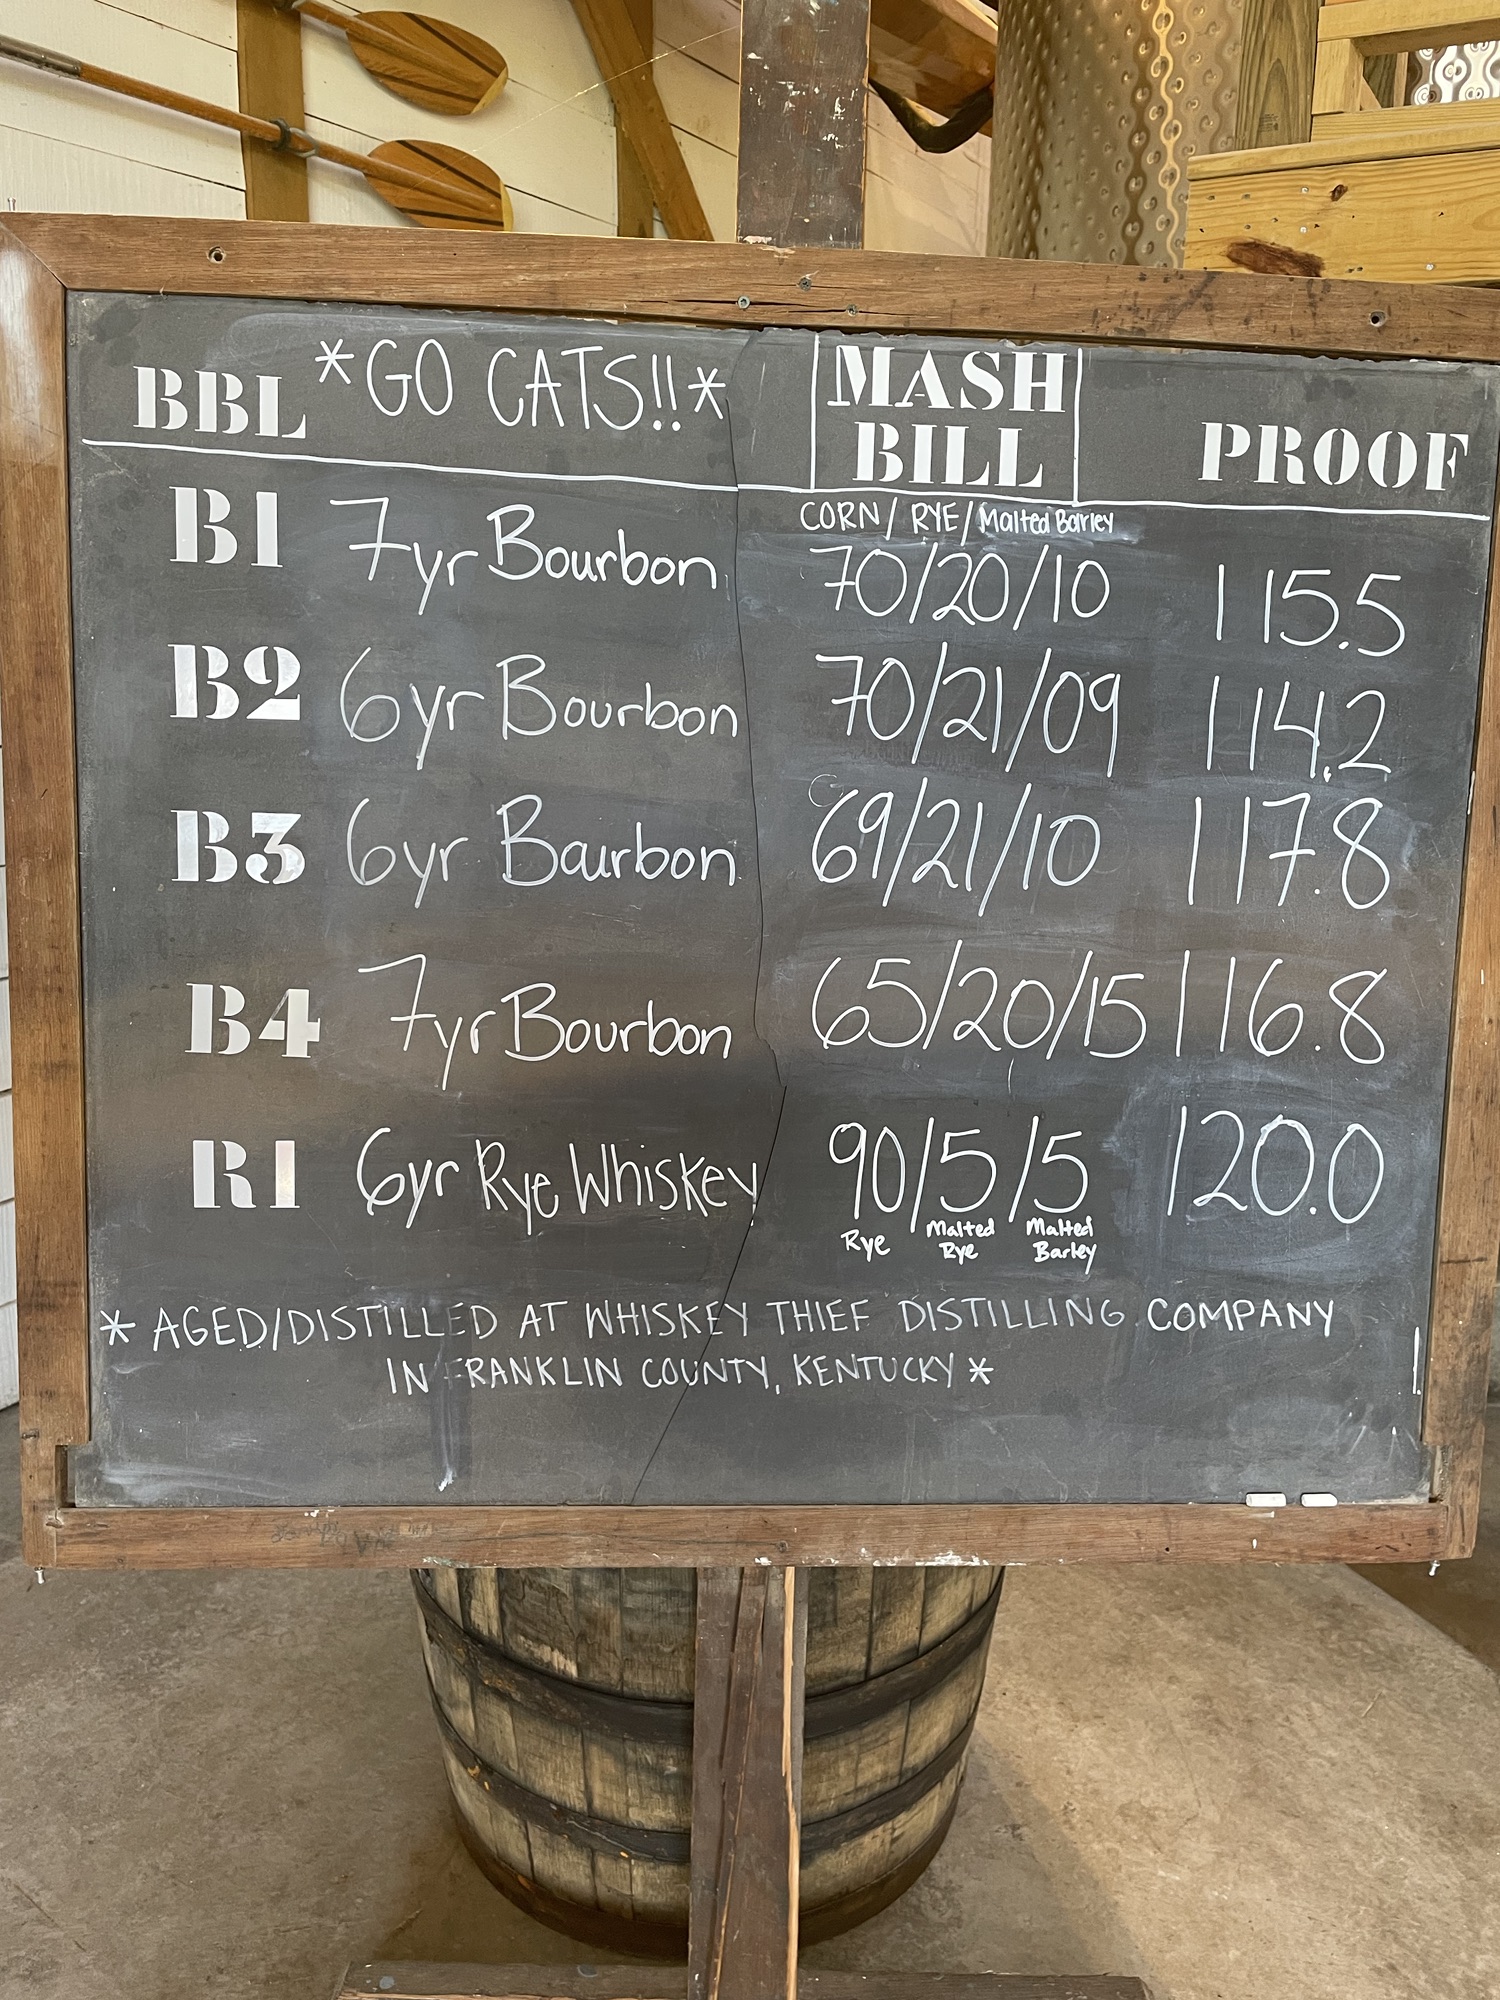 BBL *GO CATS!!* MASH BILL PROOF
CORN/ RYE/ Malted Barley
B1 7yr Bourbon 70/20/10 115.5
B2 6yr Bourbon 70/21/09 114.2
B3 6yr Bourbon 69/21/10 117.8
B4 7yr Bourbon 65/20/15 116.8
R1 6yr Rye Whiskey 90/5/5 120.0
Rye Malted Rye Malted Barley
* AGED/DISTILLED AT WHISKEY THIEF DISTILLING COMPANY
IN FRANKLIN COUNTY, KENTUCKY *